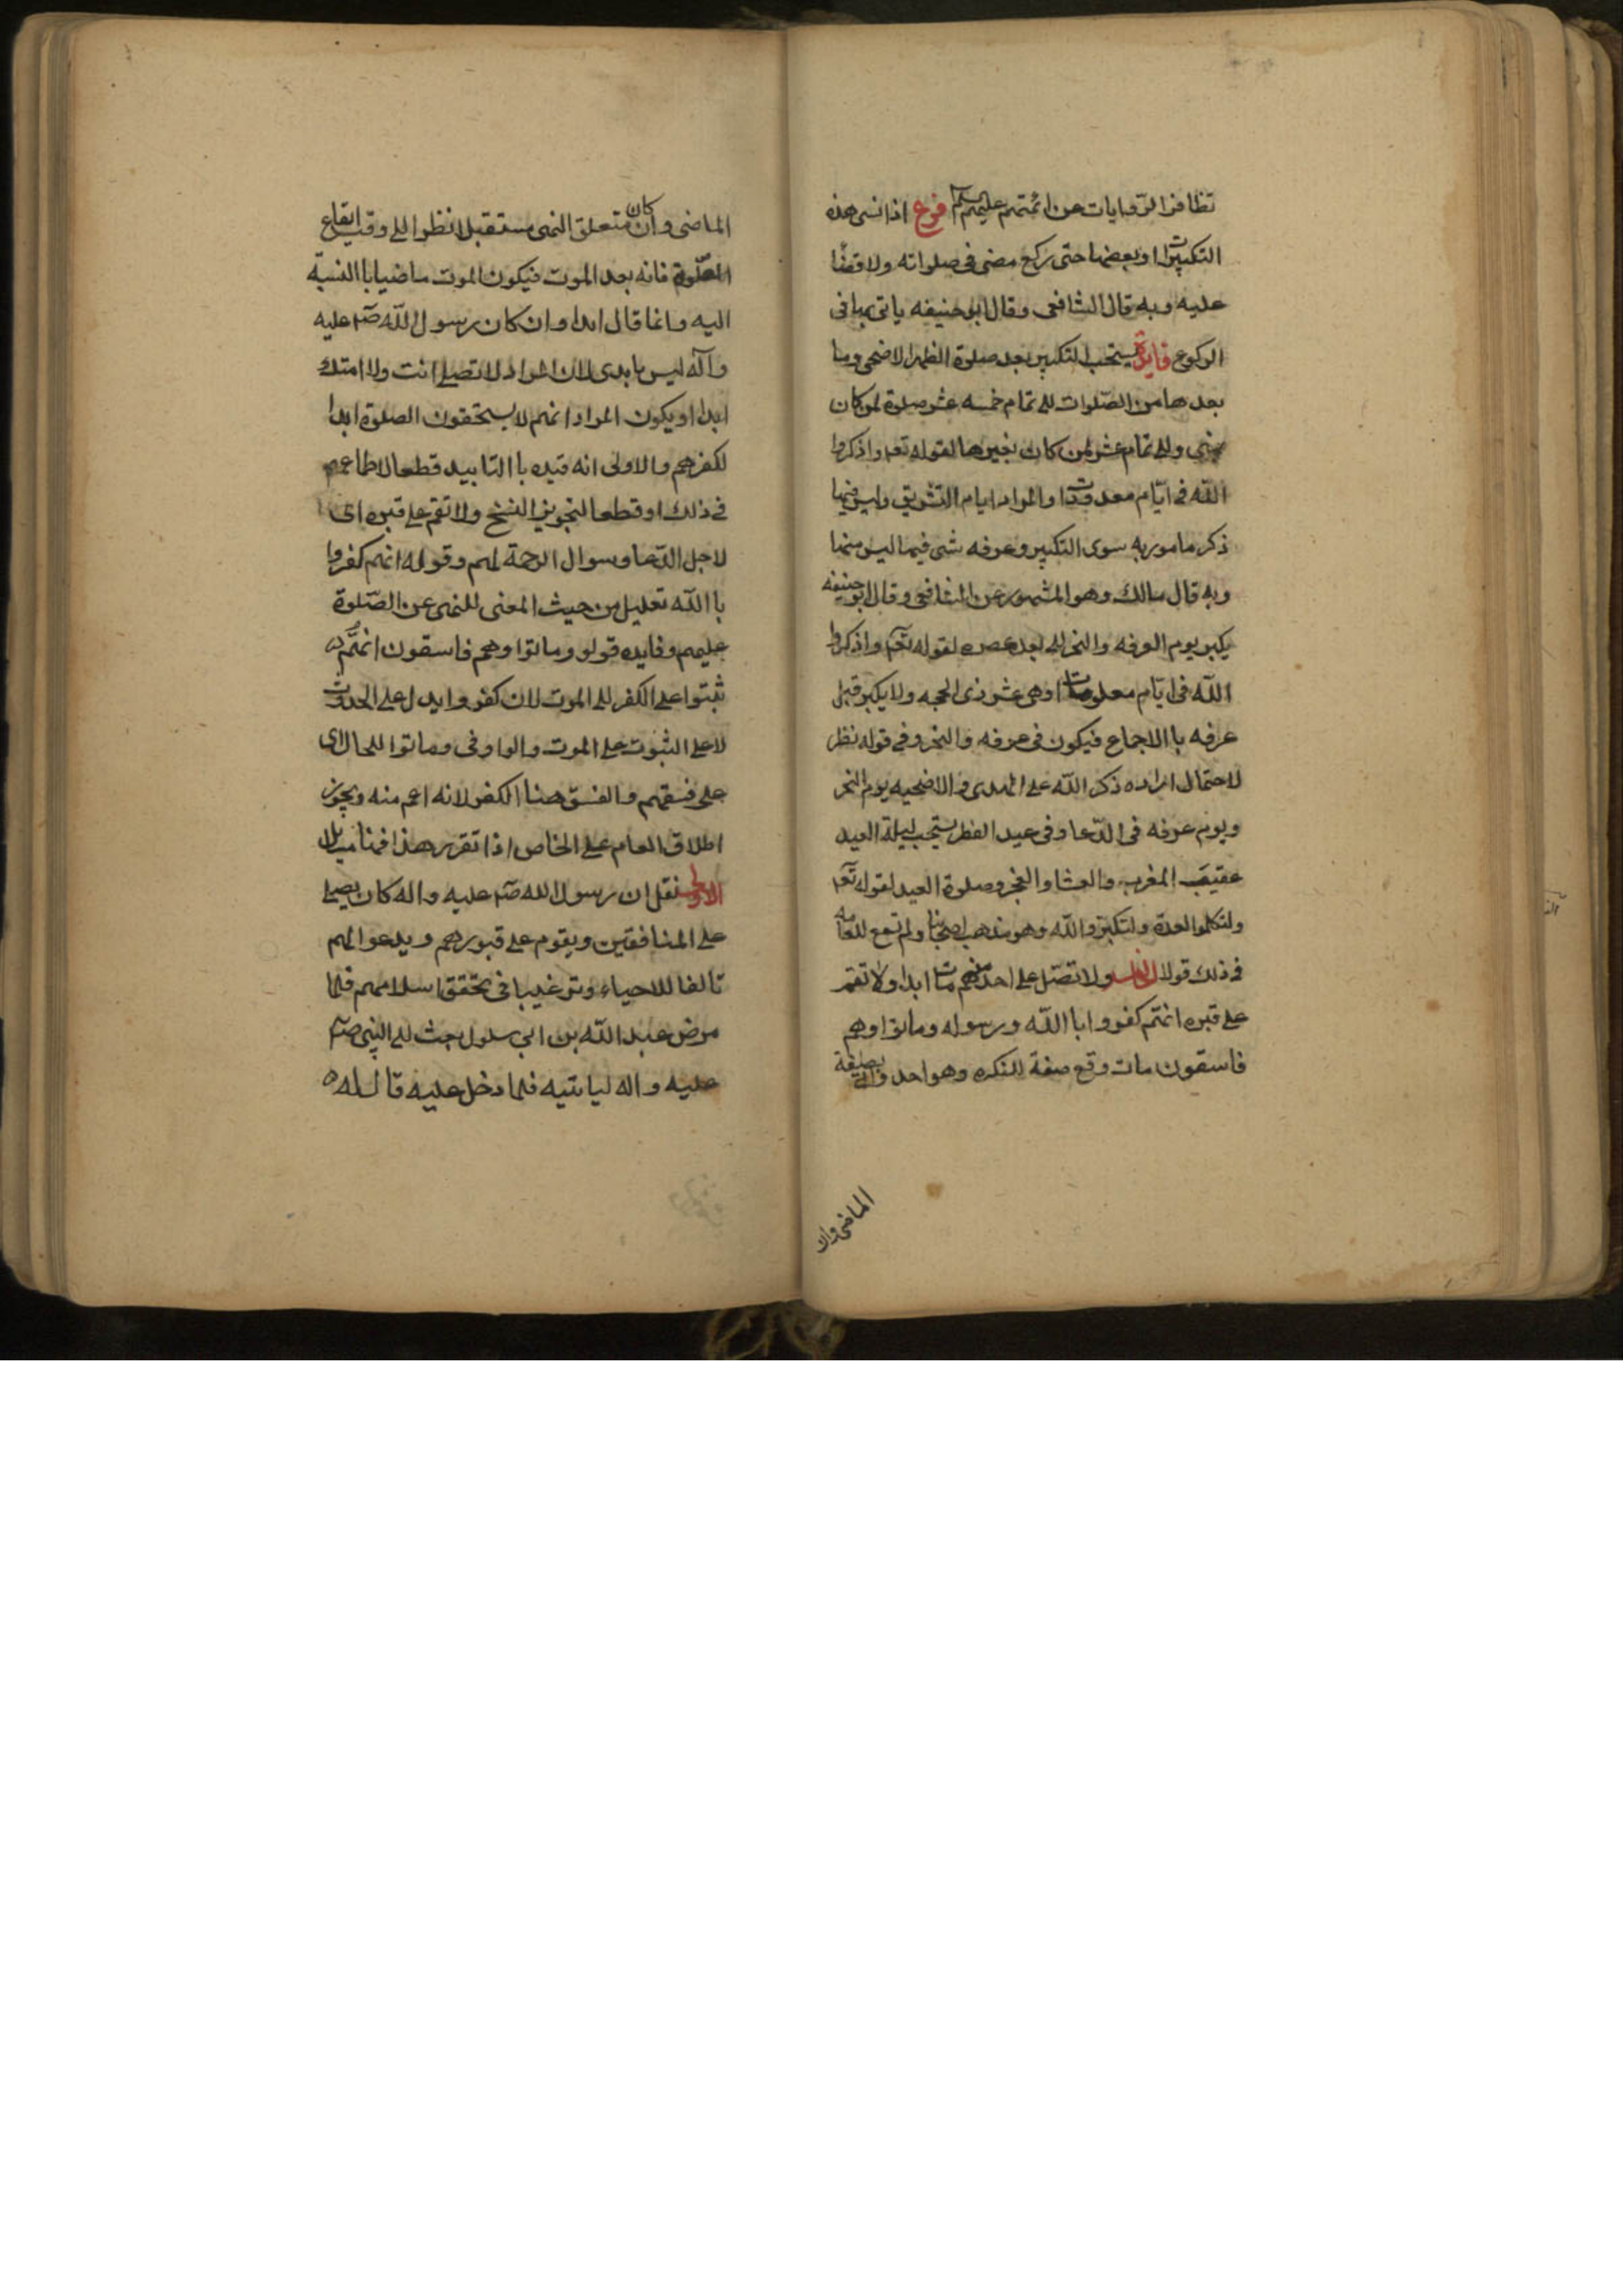 تظافر الروايات عن ائمتهم عليهم السلم فرع اذا نسى هذه
التكبيرات او بعضها حتى ركع مضى فى صلواته ولا قضا
عليه وبه قال الشافعى وقال ابو حنيفه ياتى بها فى
الركوع فايدة يستحب التكبير بعد صلوة الظهر الاضحى وما
بعدها من الصلوات الى تمام خمسه عشر صلوة لمن كان
بمنى والى تمام عشر لمن كان بغيرها لقوله تعه واذكروا
الله فى ايّام معدودات والمراد ايام التشريق وليس فيها
ذكر مامور به سوى التكبير وعرفه شى فيما ليس منها
وبه قال مالك وهو المشهور عن الشافعى وقال ابو حنيفه
يكبر يوم العرفه والنحر الى بعد عصره لقوله تعه واذكروا
الله فى ايّام معلومات وهى عشر ذى الحجه ولا يكبر قبل
عرفه باالاجماع فيكون فى عرفه والنحر وفى قوله نظر
لاحتمال اراده ذكر الله على الهدى والاضحيه يوم النحر
ويوم عرفه فى الدّعا وفى عيد الفطر يستحب ليلة العيد
عقيب المغرب والعشا والفجر وصلوة العيد لقوله تعه
ولتكملوا العدة ولتكبروا الله وهو مذهب اصحابنا ولم تقع للعامه
فى ذلك قولا ولا تصل على احد منهم مات ابدا ولا تقم
على قبره انهم كفروا باالله ورسوله وماتوا وهم
فاسقون مات وقع صفة للنكره وهو احد واتى بصيغة
الماضى وان
الماضى وان كان متعلق النهى مستقبلا نظرا الى وقت ايقاع
الصّلوة فانه بعد الموت فيكون الموت ماضيا باالنسبة
اليه وانما قال ابدا وان كان رسول الله صه عليه
وآله ليس بابدى لان المراد لا تصلى انت ولا امتك
ابدا او يكون المراد انهم لا يستحقون الصلوة ابدا
لكفرهم والاولى انه قيده باالتابيد قطعا لاطماعهم
فى ذلك او قطعا لتجويز النسخ ولا تقم على قبره اى
لاجل الدّعا وسوال الرحمة لهم وقوله انهم كفروا
باالله تعليل من حيث المعنى للنهى عن الصّلوة
عليهم وفايده قوله وماتوا وهم فاسقون انهم
ثبتوا على الكفر الى الموت لان كفروا يدل على الحدوث
لا على الثبوت على الموت والواو فى وماتوا للحال اى
على فسقهم والفسق هنا الكفر لانه اعم منه ويجوز
اطلاق العام على الخاص اذا تقرر هذا فهنا مسايل
الاولى نقل ان رسول الله صه عليه واله كان يصلى
على المنافقين ويقوم على قبورهم ويدعو لهم
تالفا للاحياء وترغيبا فى تحقق اسلامهم فلما
مرض عبد الله بن ابى سلول بعث الى النبى صه
عليه واله لياتيه فلما دخل عليه قال له